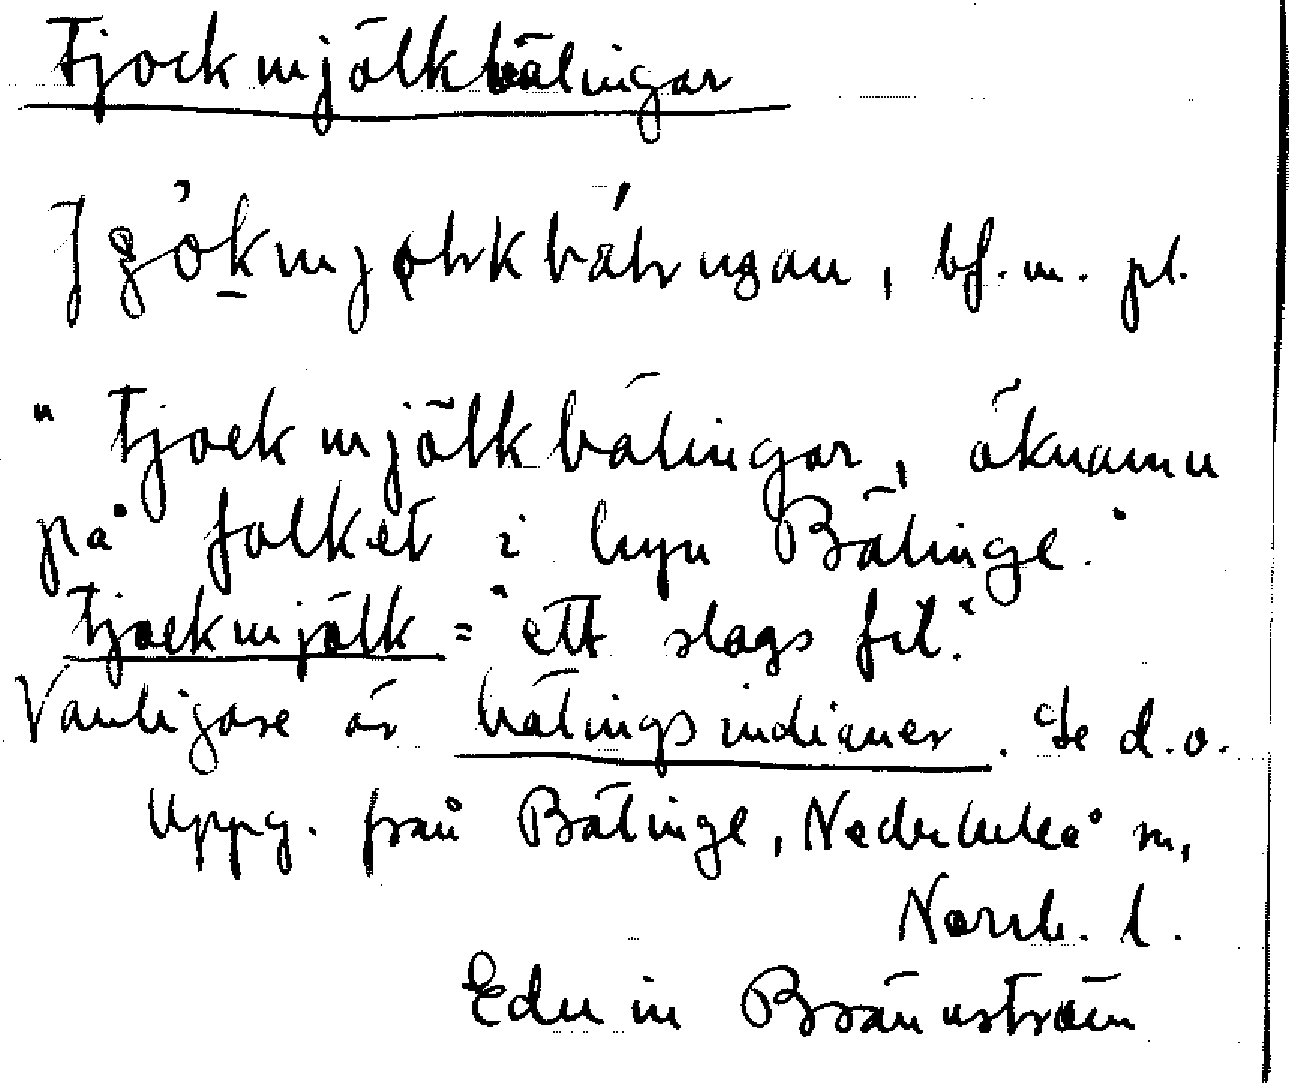 Tjockmjölkbälingar
bf. m. pl.
"Tjockmjölkbälingar, öknamn
på folket i byn Bälinge."
Tjockmjölk = "ett slags fil."
Vanligare är bälingsindianer. Se d.o.
Uppg. från Bälinge, Nederluleå sn,
Norrb. l.
Edvin Brännström